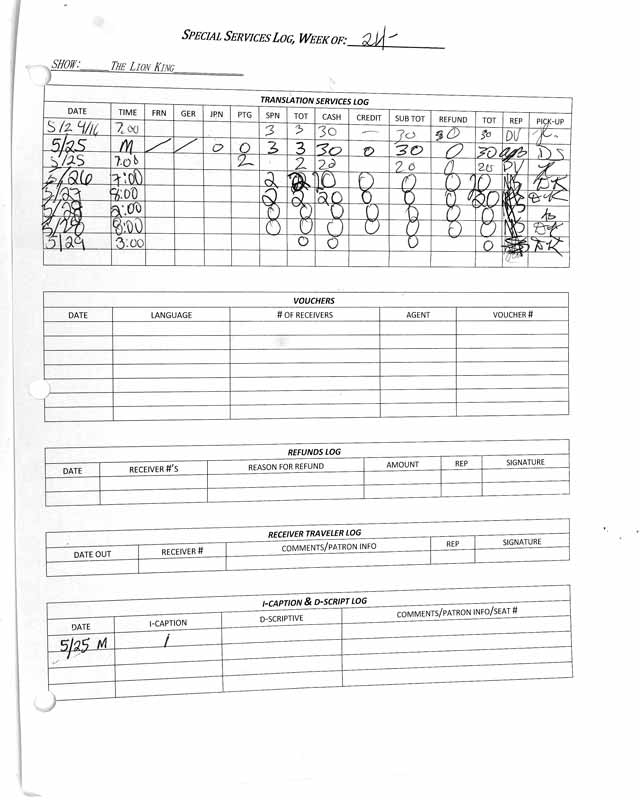 SPECIAL SERVICES LOG, WEEK OF: 24-
SHOW: THE LION KING
TRANSLATION SERVICES LOG
DATE TIME FRN GER JPN PTG SPN TOT CASH CREDIT SUB TOT REFUND TOT REP PICK-UP
5/24/16 7:00 3 3 30 — 30 0 30 DV
5/25 M / / 0 0 3 3 30 0 30 0 30 DS
5/25 7:00 2 2 20 20 0 20 DV
5/26 7:00 2 2 0 0 0 DK
5/27 8:00 2 2 20 0 0 0 20 DK
5/28 2:00 0 0 0 0 0 0 0
5/28 8:00 0 0 0 0 0 0 0 DK
5/29 3:00 0 0 0 0 DK
VOUCHERS
DATE LANGUAGE # OF RECEIVERS AGENT VOUCHER #
REFUNDS LOG
DATE RECEIVER #'S REASON FOR REFUND AMOUNT REP SIGNATURE
RECEIVER TRAVELER LOG
DATE OUT RECEIVER # COMMENTS/PATRON INFO REP SIGNATURE
I-CAPTION & D-SCRIPT LOG
DATE I-CAPTION D-SCRIPTIVE COMMENTS/PATRON INFO/SEAT #
5/25 M 1